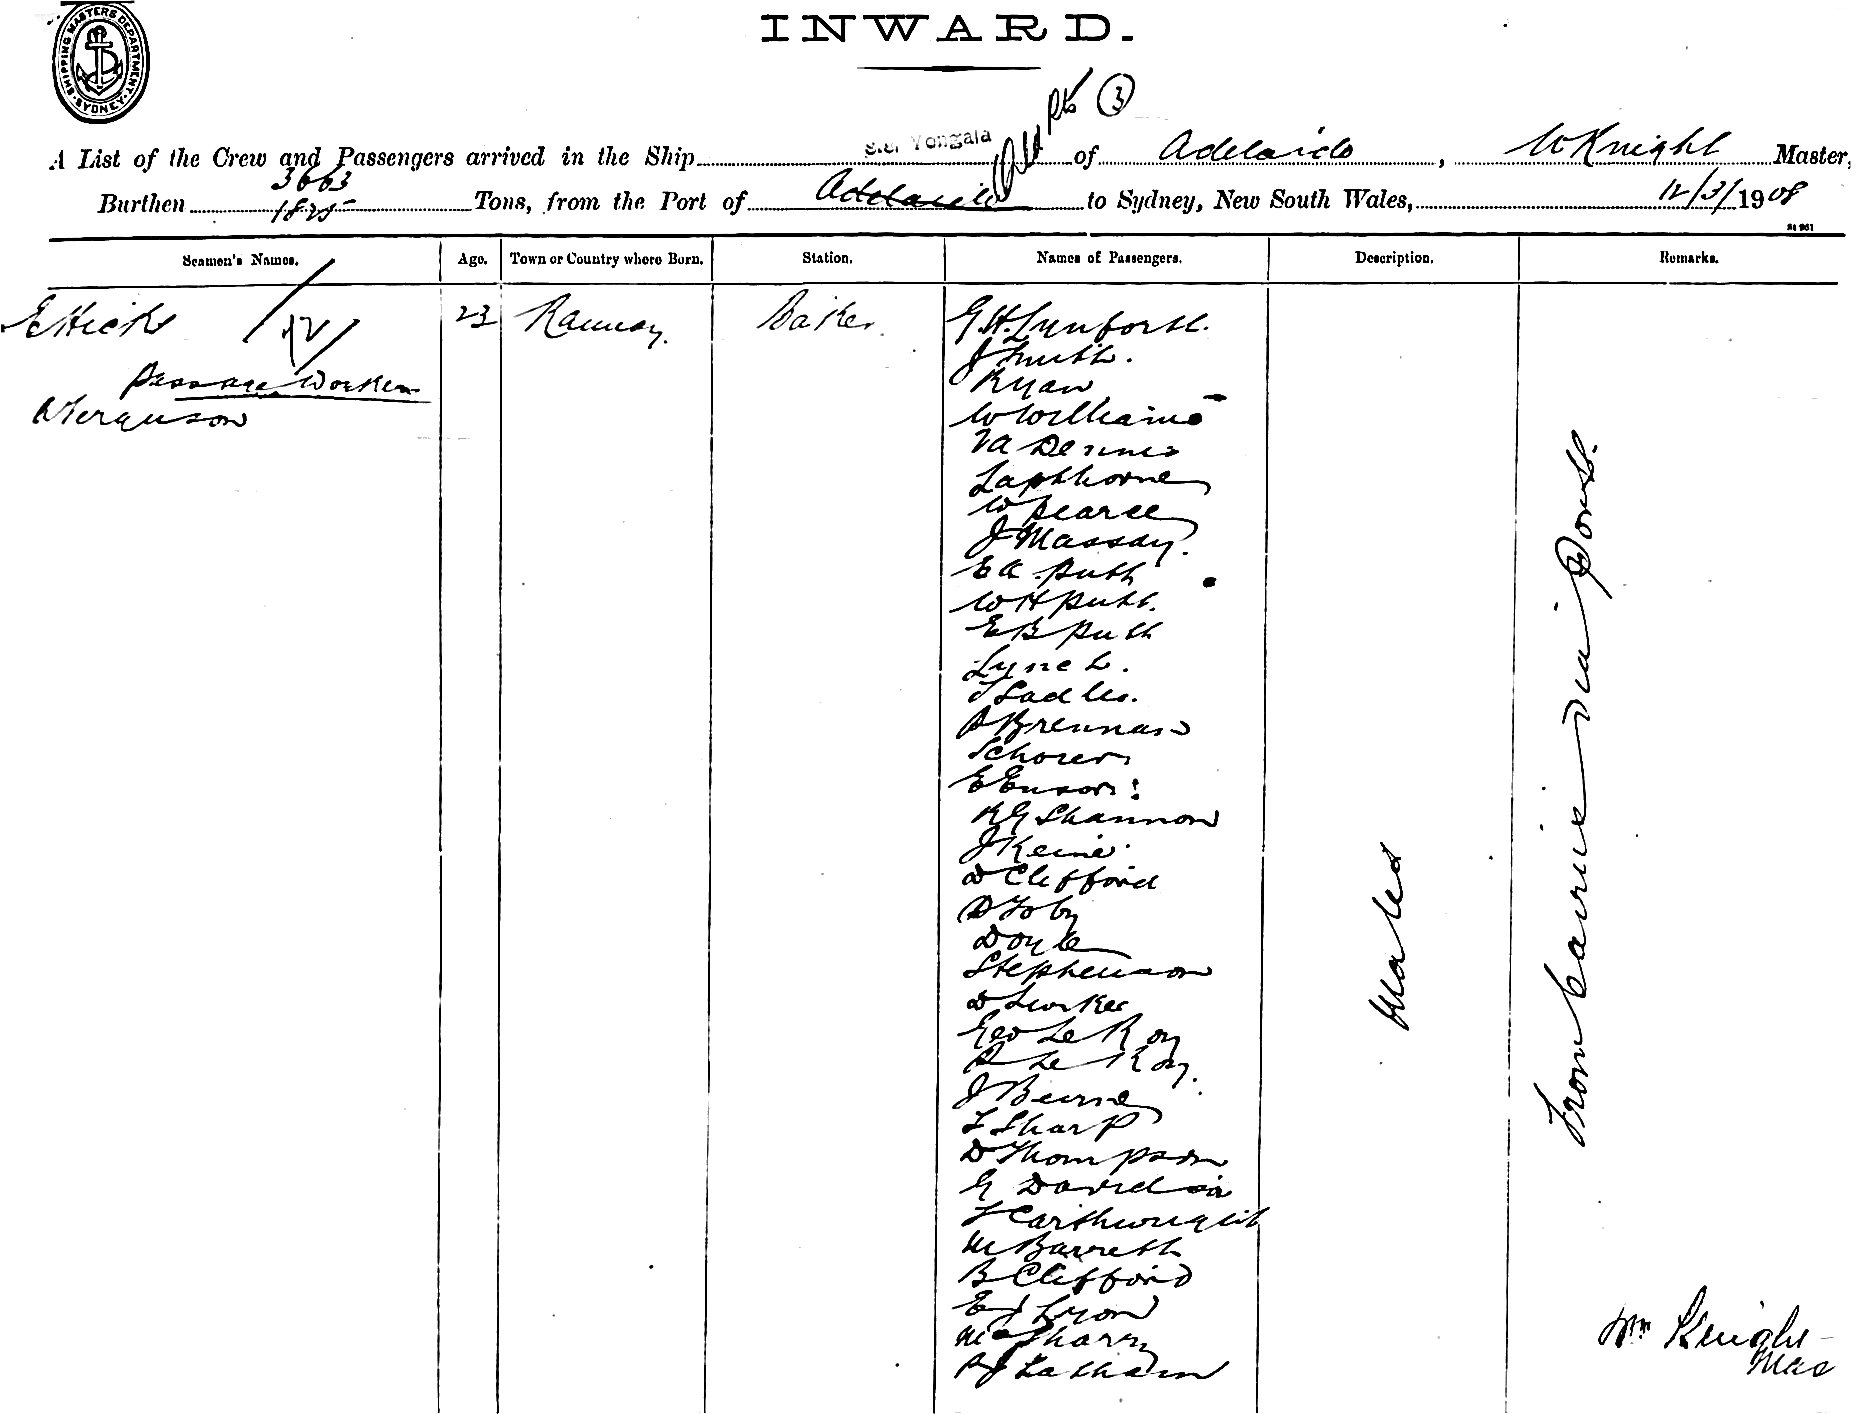 INWARD.
SHIPPING MASTERS DEPARTMENT. SYDNEY.
3
A List of the Crew and Passengers arrived in the Ship S.S. Yongala of Adelaide, W Knight Master,
3663
Burthen 1825 Tons, from the Port of Adelaide to Sydney, New South Wales, 12/3/1908
Seamen's Names. Age. Town or Country where Born. Station. Names of Passengers. Description. Remarks.
E Hicks 23 Baker G H Lynforth.
J Smith.
Passage Worker Ryan
Ferguson W Williams
Dennis
Lapthorne
W Pearce
J Massay.
E A Puth
W H Puth.
E B Puth
Lynch.
Sadler.
Brennan
Schorer
E Ensor
R G Shannon
J Keine
D Clifford
D Toby
Doyle
Stephenson
D
Geo Le Roy
Le Roy.
J Beirne
Sharp
D Thompson
G Davidson
Carthwright
M Barrett
B Clifford
E J Lyon
McSharry
Latham
Males
From Cairns via Ports.
Wm Knight
Mas